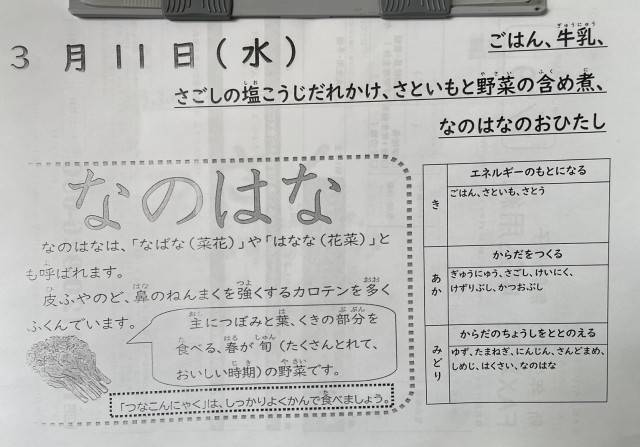 3月11日(水)
ごはん、牛乳、
さごしの塩こうじだれかけ、さといもと野菜の含め煮、
なのはなのおひたし
なのはな
なのはなは、「なばな(菜花)」や「はなな(花菜)」と
も呼ばれます。
皮ふやのど、鼻のねんまくを強くするカロテンを多く
ふくんでいます。
主につぼみと葉、くきの部分を
食べる、春が旬(たくさんとれて、
おいしい時期)の野菜です。
「つなこんにゃく」は、しっかりよくかんで食べましょう。
き
エネルギーのもとになる
ごはん、さといも、さとう
あか
からだをつくる
ぎゅうにゅう、さごし、けいにく、
けずりぶし、かつおぶし
みどり
からだのちょうしをととのえる
ゆず、たまねぎ、にんじん、さんどまめ、
しめじ、はくさい、なのはな